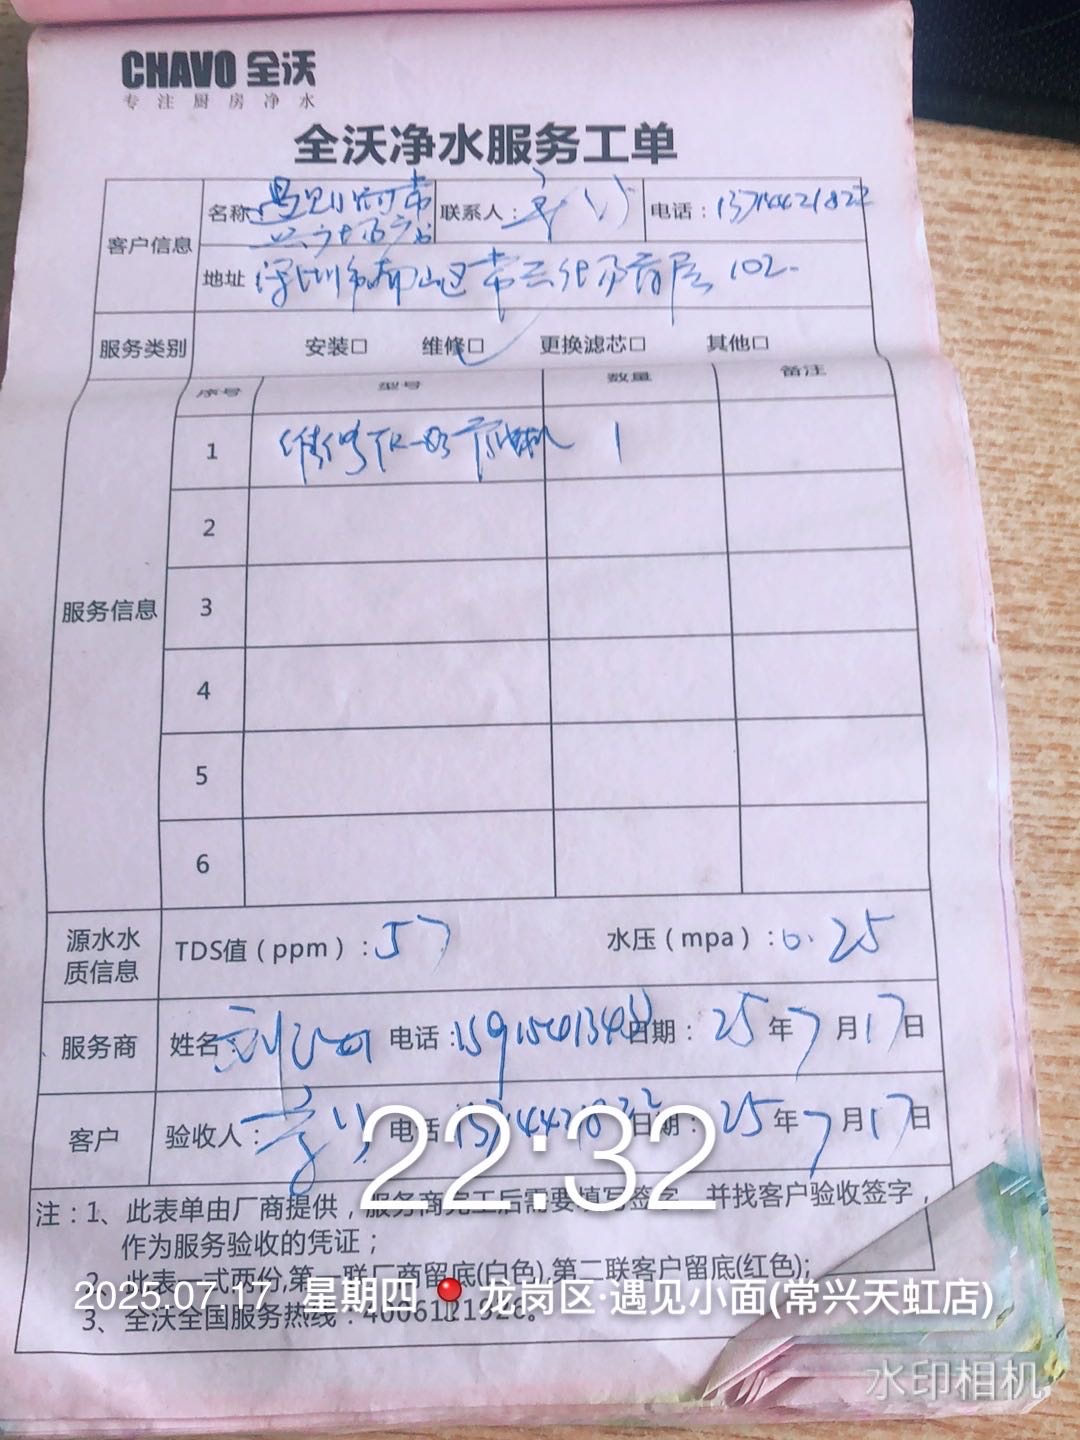 CHAVO 全沃
专注厨房净水
全沃净水服务工单
客户信息
名称 遇见小面常兴
联系人：
电话：13714421822
地址 深圳市南山区常兴 102
服务类别 安装□ 维修□ 更换滤芯□ 其他□
序号 型号 数量 备注
服务信息
1 维修 1
2
3
4
5
6
源水水质信息
TDS值（ppm）：57 水压（mpa）：0.25
服务商 姓名 刘 电话： 日期：25年7月17日
客户 验收人： 电话 日期：25年7月17日
22:32
注：1、此表单由厂商提供，服务商完工后需要填写签字，并找客户验收签字，
作为服务验收的凭证；
2、此表一式两份,第一联厂商留底(白色),第二联客户留底(红色);
2025.07.17 星期四 龙岗区·遇见小面(常兴天虹店)
3、全沃全国服务热线：
水印相机